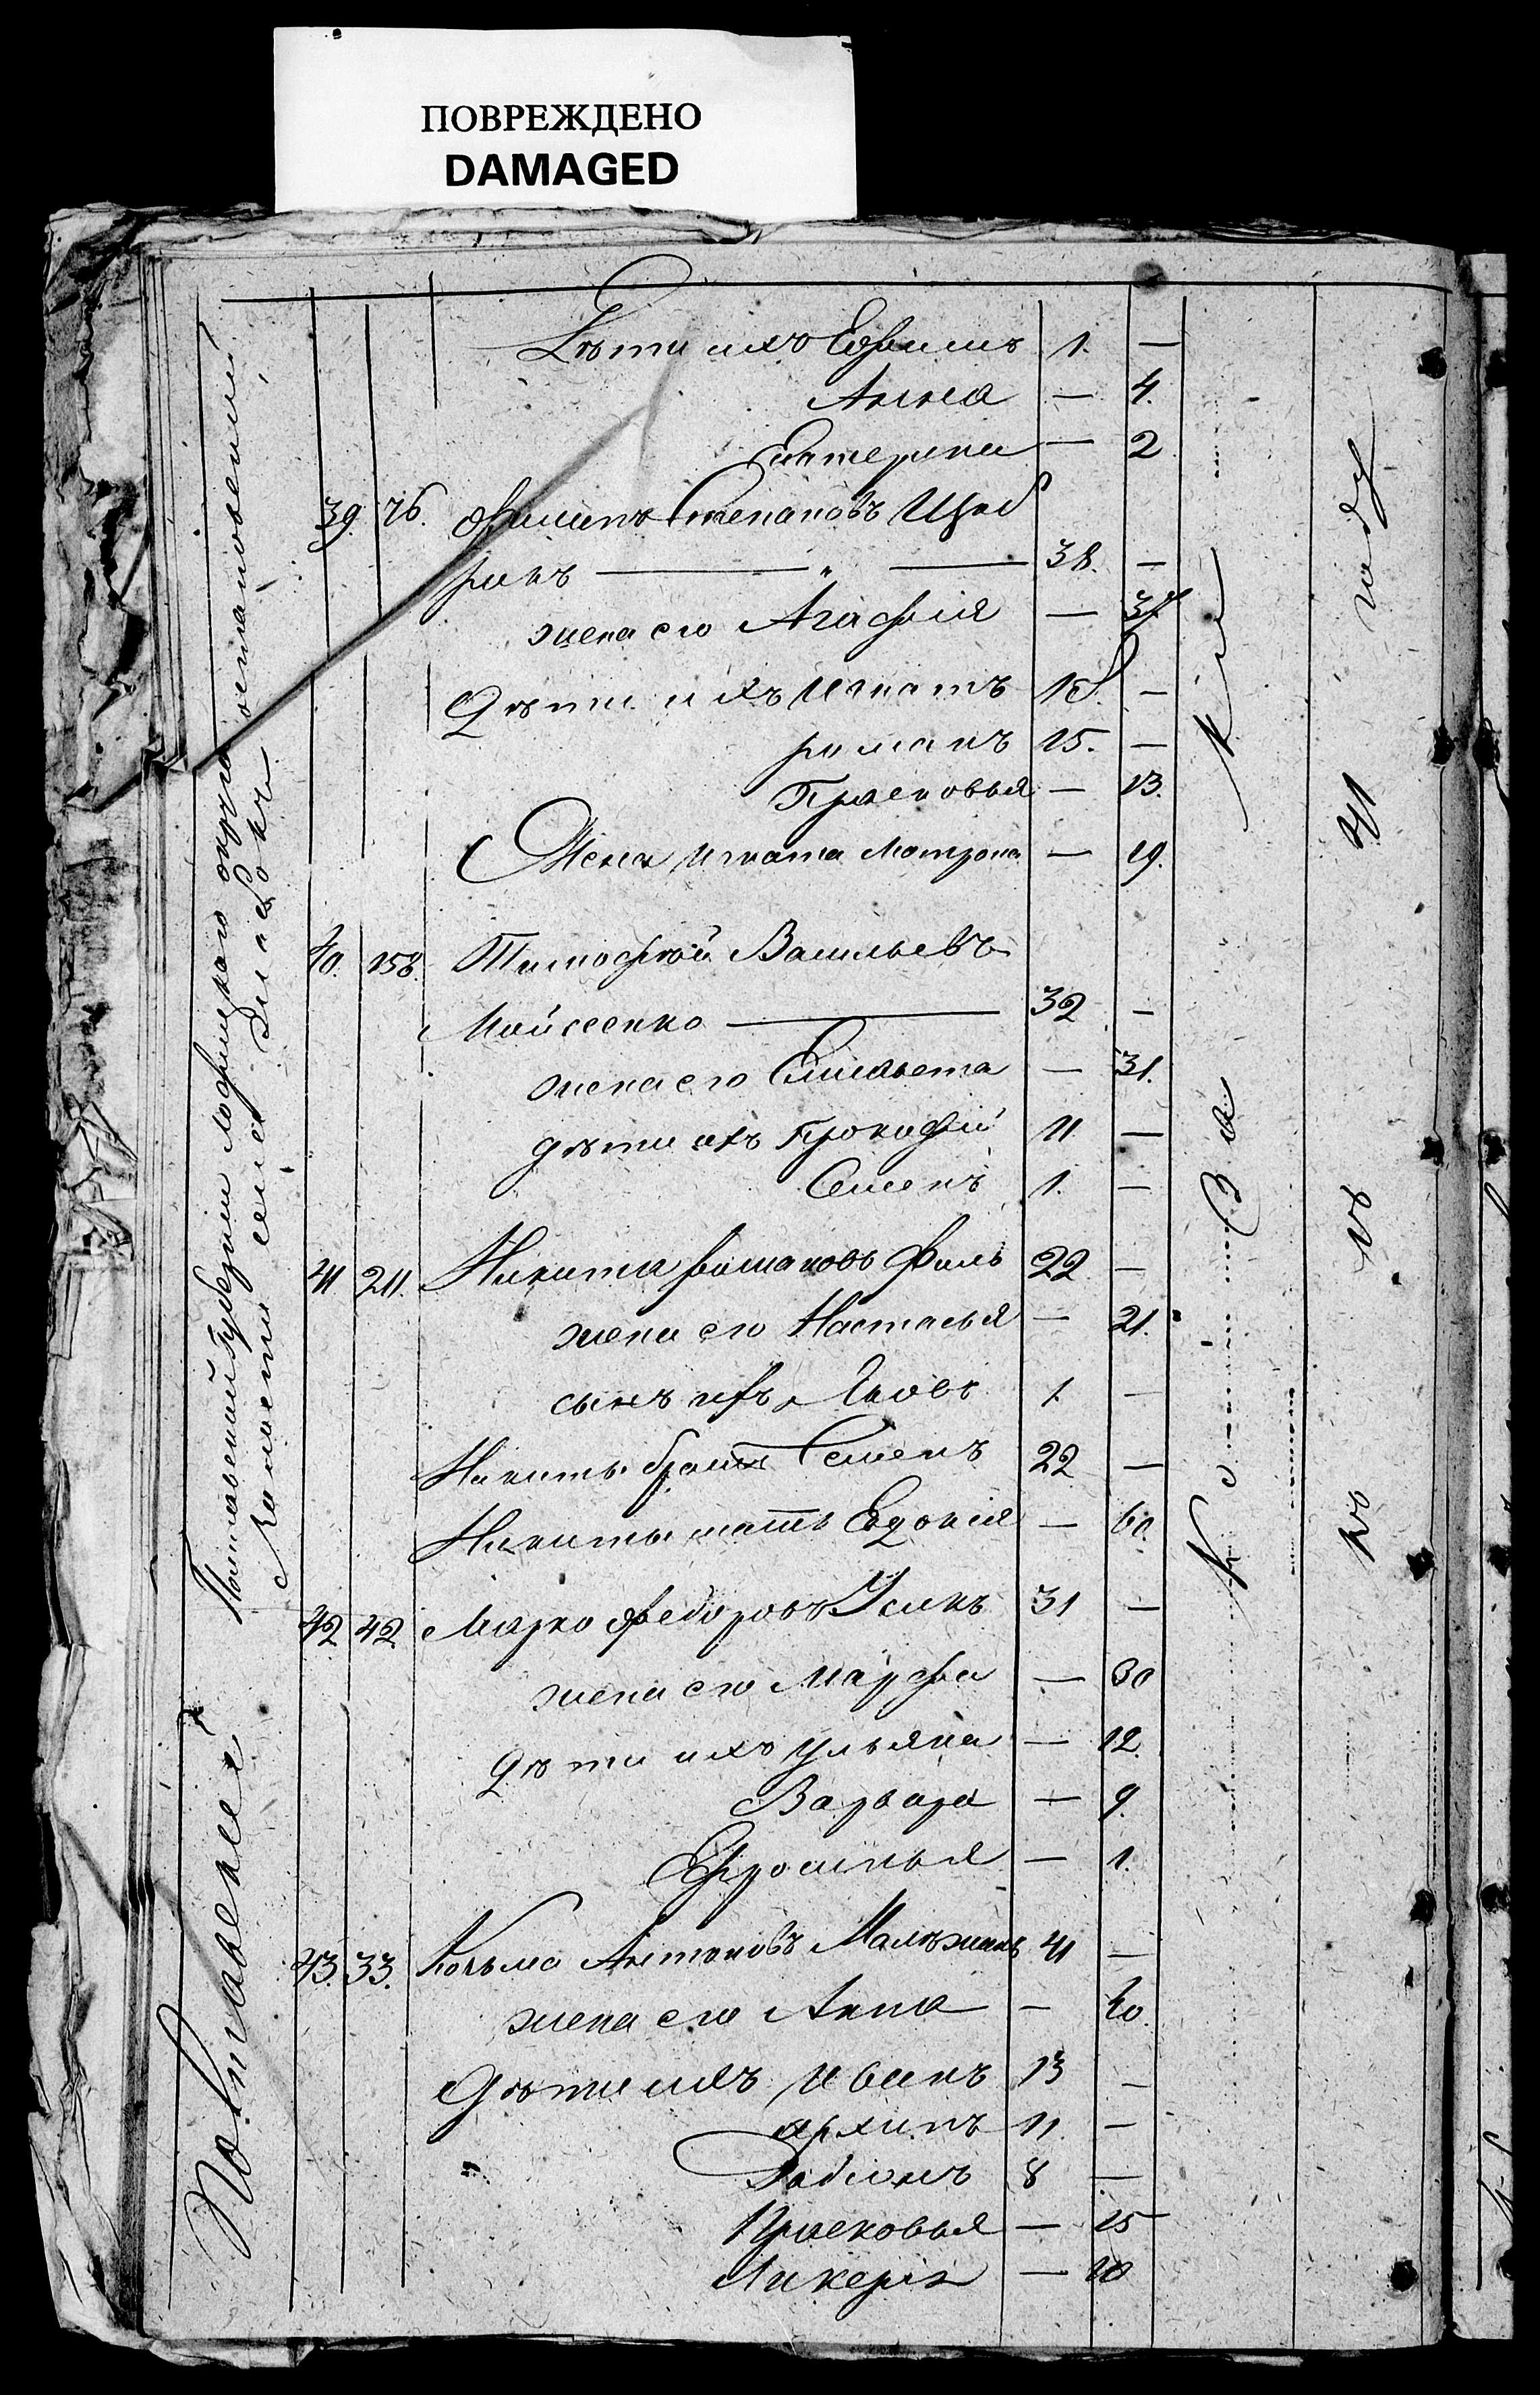 ПОВРЕЖДЕНО
DAMAGED
Дѣти ихъ Ефимъ 1. —
Анна — 4.
Екатерина — 2
39. 76. Филипъ Степановъ Щеб
рикъ — „ — 38. —
жена его Агафія — 37.
Дѣти ихъ Игнатъ 18. —
романъ 15. —
Прасковья — 13.
Жена Игната Матрона — 19.
40. 158. Тимофѣй Васильевъ
Мойсеенко — 32 —
жена его Елисавета — 31.
дѣти ихъ Прокофій 11 —
Семенъ 1. —
41 211. Никита романовъ Филь 22 —
жена его Настасья — 21.
сынъ ихъ Яковъ 1 —
Никиты братъ Семенъ 22 —
Никиты мать Евдокія — 60.
42 42 Марко Федоровъ Усикъ 31 —
жена его Марфа — 30
дѣти ихъ ульяна — 12.
Варвара — 9.
Ефросинья — 1.
43. 33. Козьма Антоновъ 41 —
жена его Анна — 40.
Дѣти ихъ Иванъ 13 —
архипъ 11. —
Родіонъ 8 —
Прасковья — 15
Ликерія — 10
Полтавской Губерніи Лохвицкаго округа
волости села
Полтавской
въ 41 году